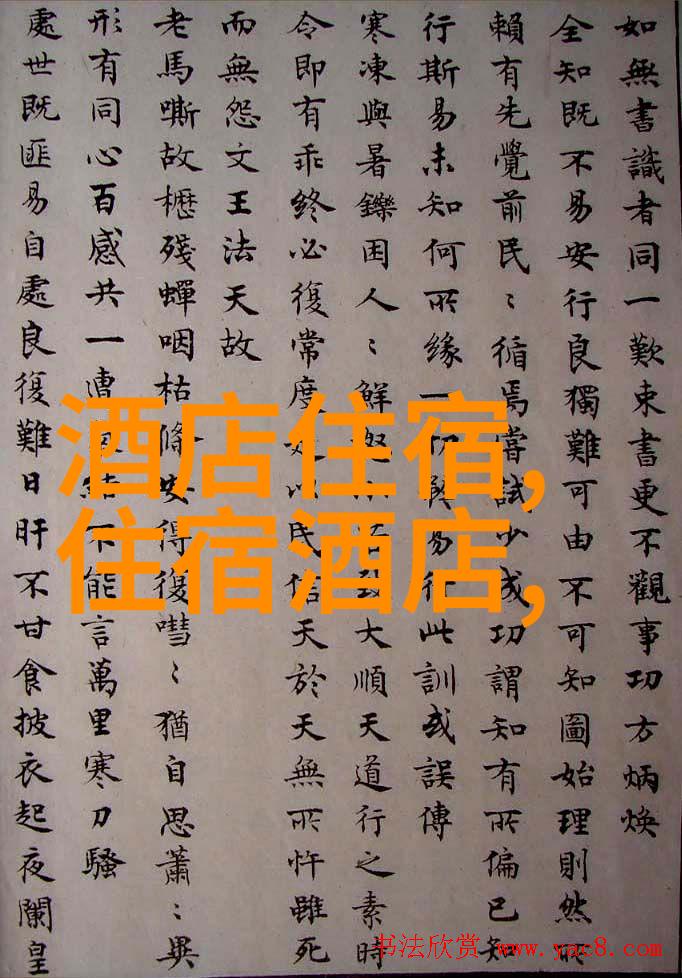 如無書識者同一歎束書更不觀事功方炳煥
全知既不易安行良獨難可由不可知圖始理則然所
賴有先覺前民〻循焉嘗試少成功謂知有所偏已知
行斯易未知何所緣一切難易行此訓或誤傳
寒凍與暑鑠困人〻鮮大順天道行之素時
令即有乖終必復常度是以民信天於天無所忤雖死
而無怨文王法天故
老馬嘶故櫪殘蟬咽枯條安得復嘒〻猶自思蕭〻異
形有同心百感共一結不能言萬里寒刀騷
處世既匪易自處良復難日旰不甘食披衣起夜闌皇
酒店住宿,
住宿酒店,
书法欣赏 www.yac8.com